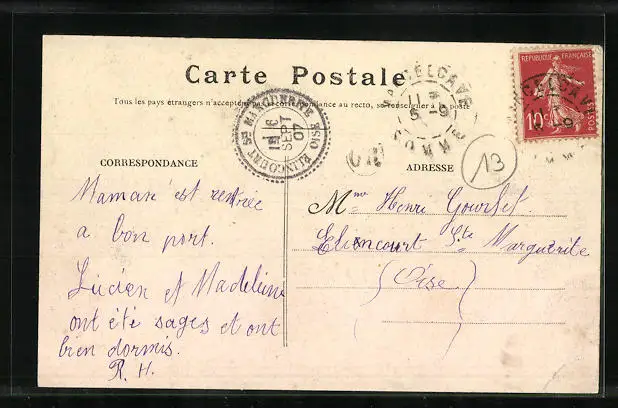 Carte Postale
Tous les pays étrangers n'acceptent pas la correspondance au recto, se renseigner à la poste
CORRESPONDANCE
ADRESSE
REPUBLIQUE FRANÇAISE
10c
MARCELCAVE
11 5 -9
SOMME
SEPT
07
OISE
OR
13
Maman est rentrée
a bon port.
Lucien et Madeleine
ont été sages et ont
bien dormis.
R. H.
Mme Henri Gourlet
Elincourt Ste Marguerite
(Oise)